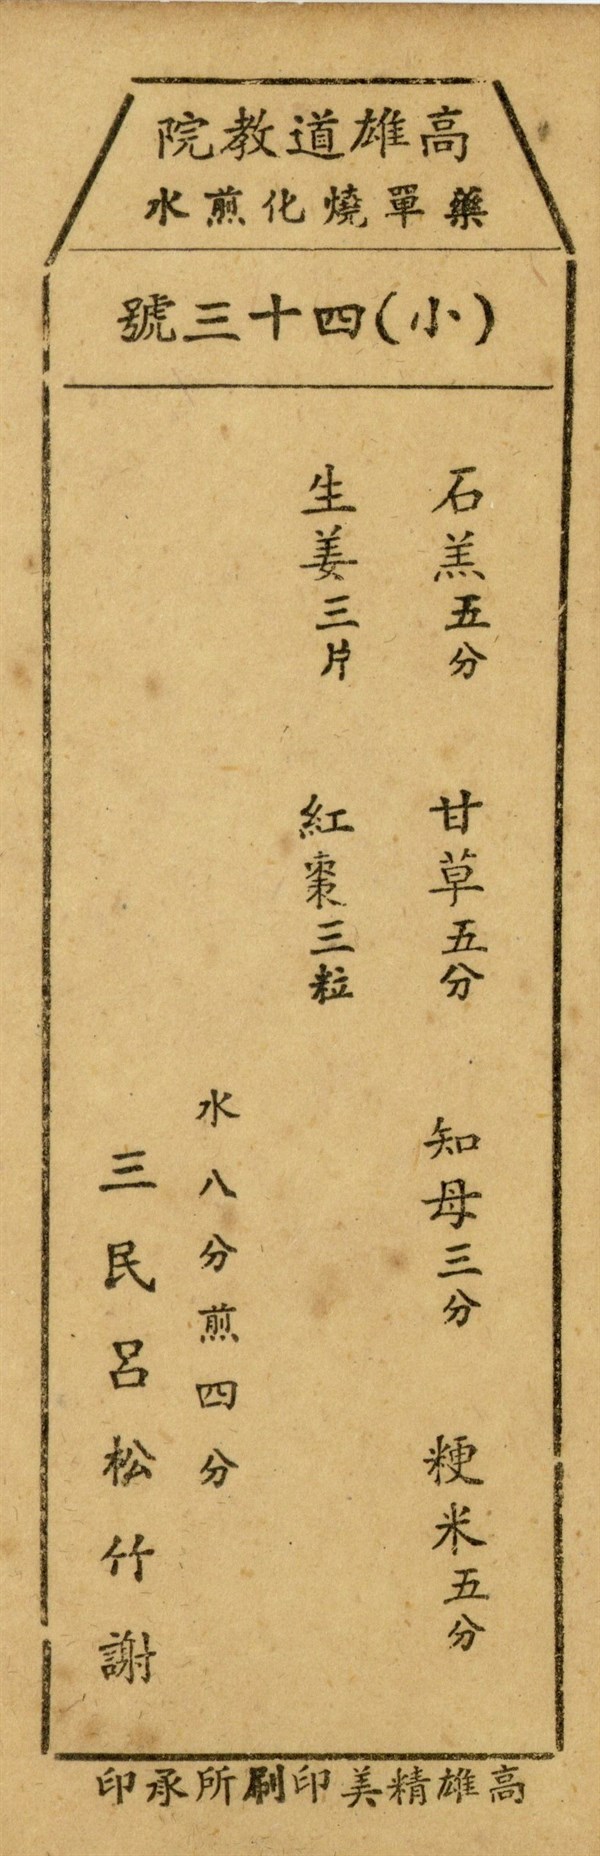 高雄道教院
藥單燒化煎水
(小)四十三號
石羔五分 甘草五分 知母三分 粳米五分
生姜三片 紅棗三粒
水八分煎四分
三民呂松竹謝
高雄精美印刷所承印